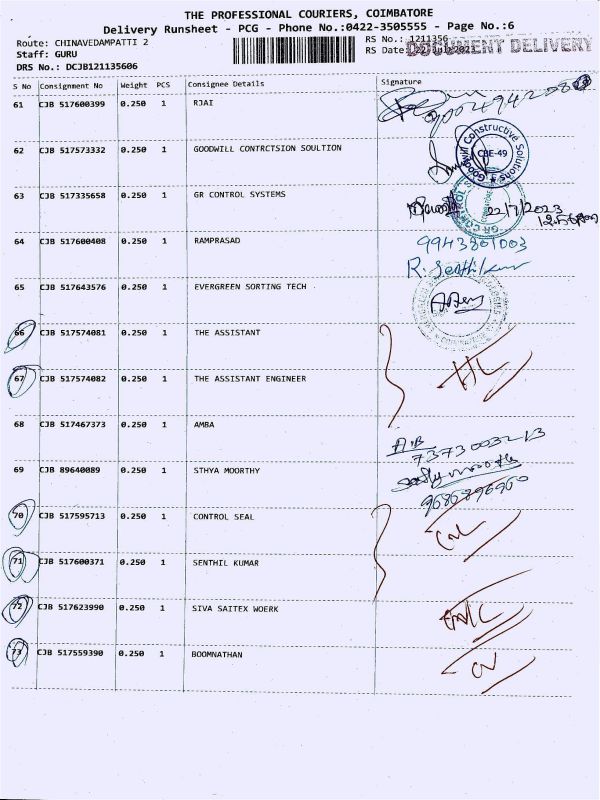 THE PROFESSIONAL COURIERS, COIMBATORE
Delivery Runsheet - PCG - Phone No.:0422-3505555 - Page No.:6
Route: CHINAVEDAMPATTI 2 RS No.: 1211356
Staff: GURU RS Date: DOCUMENT DELIVERY
DRS No.: DCJB121135606
S No Consignment No Weight PCS Consignee Details Signature
61 CJB 517600399 0.250 1 RJAI
62 CJB 517573332 0.250 1 GOODWILL CONTRCTSION SOULTION
Goodwill Constructive Solutions CBE-49
63 CJB 517335658 0.250 1 GR CONTROL SYSTEMS 22/7/2023
64 CJB 517600408 0.250 1 RAMPRASAD 9943801003
R. Senthilkumar
65 CJB 517643576 0.250 1 EVERGREEN SORTING TECH
66 CJB 517574081 0.250 1 THE ASSISTANT
67 CJB 517574082 0.250 1 THE ASSISTANT ENGINEER
68 CJB 517467373 0.250 1 AMBA A.B
7373003213
69 CJB 89640089 0.250 1 STHYA MOORTHY
70 CJB 517595713 0.250 1 CONTROL SEAL
71 CJB 517600371 0.250 1 SENTHIL KUMAR
72 CJB 517623990 0.250 1 SIVA SAITEX WOERK
73 CJB 517559390 0.250 1 BOOMNATHAN